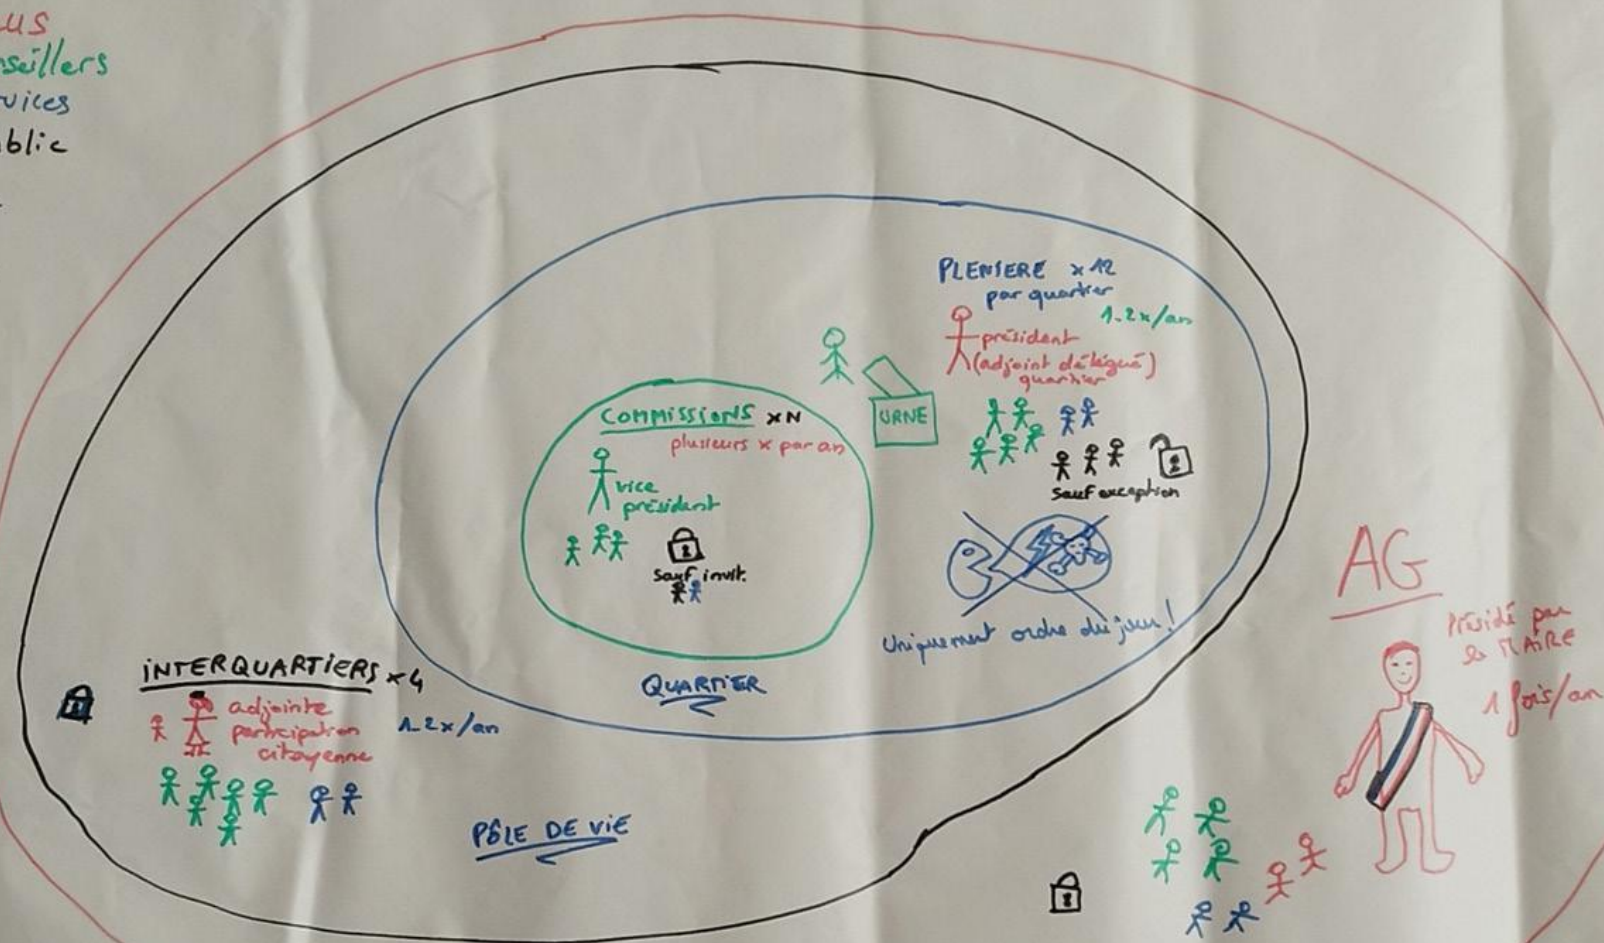 us
seillers
vices
blic
PLENIERE × 12
par quartier
1-2x/an
président
(adjoint délégué)
quartier
URNE
COMMISSIONS × N
plusieurs x par an
vice
président
sauf invit.
sauf exception
Uniquement ordre du jour !
QUARTIER
INTERQUARTIERS × 4
adjointe
participation
citoyenne
1-2x/an
PÔLE DE VIE
AG
Présidé par
le MAIRE
1 fois/an